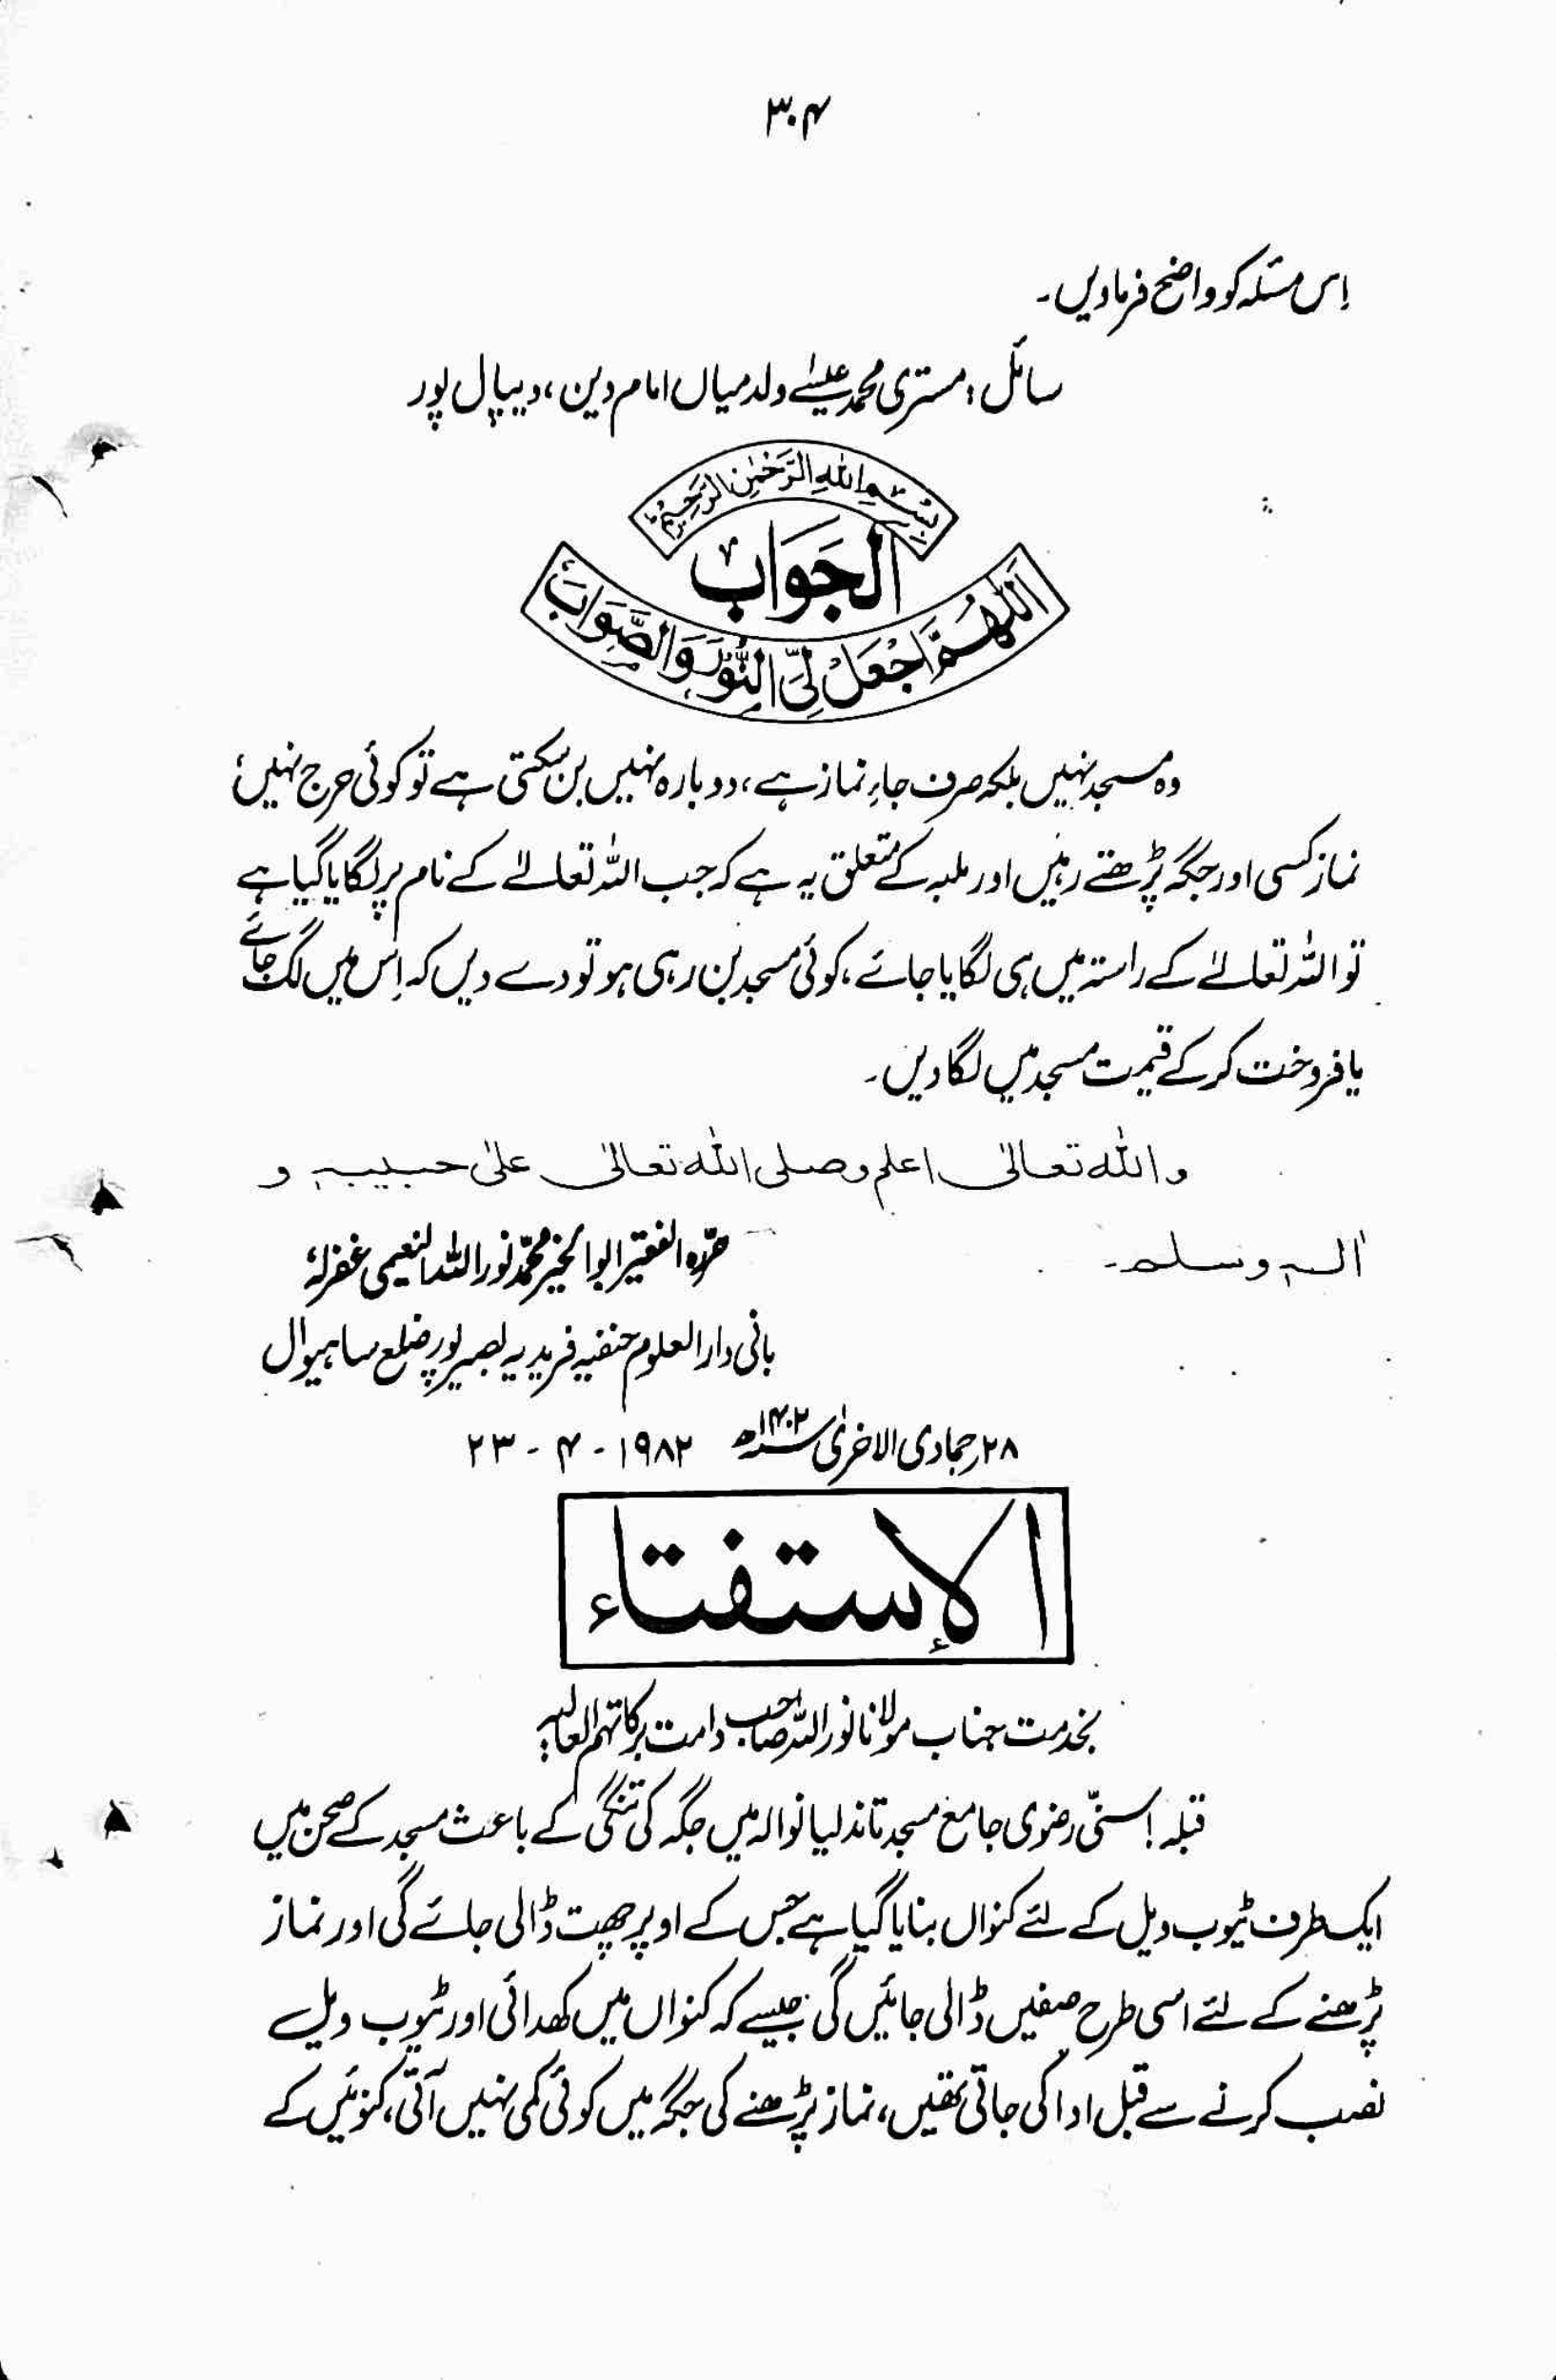 ۳۰۴
اِس مسئلہ کو واضح فرمادیں۔
سائل: مستری محمد عیسےٰ ولد میاں امام دین، دیپال پور
بِسْمِ اللّٰهِ الرَّحْمٰنِ الرَّحِيْمِ
اَلجَوَاب
اَللّٰهُمَّ اجْعَلْ لِّىَ النُّوْرَ وَالصَّوَابَ
وہ مسجد نہیں بلکہ صرف جاءِ نماز ہے، دوبارہ نہیں بن سکتی ہے تو کوئی حرج نہیں؛
نماز کسی اور جگہ پڑھتے رہیں اور ملبہ کے متعلق یہ ہے کہ جب اللہ تعالےٰ کے نام پر لگایا گیا ہے
تو اللہ تعالےٰ کے راستہ میں ہی لگایا جائے، کوئی مسجد بن رہی ہو تو دے دیں کہ اِس میں لگ جائے
یا فروخت کر کے قیمت مسجد میں لگا دیں۔
واللّٰه تعالٰی اعلم وصلی اللّٰه تعالٰی علٰی حبیبہٖ و
اٰلہٖ وسلم۔
حرّرہ الفقیر ابوالخیر محمّد نور اللہ النعیمی غفرلہٗ
بانی دارالعلوم حنفیہ فریدیہ بصیر پور ضلع ساہیوال
۲۸ رجمادی الاخریٰ سنہ ۱۴۰۲ھ ۱۹۸۲ - ۴ - ۲۳
الاِستفتاء
بخدمت جناب مولانا نور اللہ صاحب دامت برکاتہم العالیہ؛
قبلہ! سنّی رضوی جامع مسجد تاندلیانوالہ میں جگہ کی تنگی کے باعث مسجد کے صحن میں
ایک طرف ٹیوب ویل کے لئے کنواں بنایا گیا ہے جس کے اوپر چھت ڈالی جائے گی اور نماز
پڑھنے کے لئے اسی طرح صفیں ڈالی جائیں گی جیسے کہ کنواں میں کھدائی اور ٹیوب ویل
نصب کرنے سے قبل ادا کی جاتی تھیں، نماز پڑھنے کی جگہ میں کوئی کمی نہیں آتی، کنوئیں کے